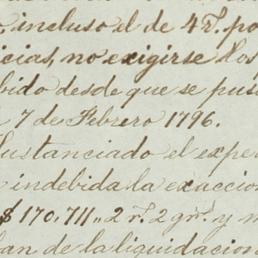 incluso el de 4 r.s po
icias, no exigirse los
bido desde que se pus
7 de Febrero 1796.
Sustanciado el expe
indebida la exaccio
$170.711,, 2 r.s 2 gr.s y m
an de la liquidacion